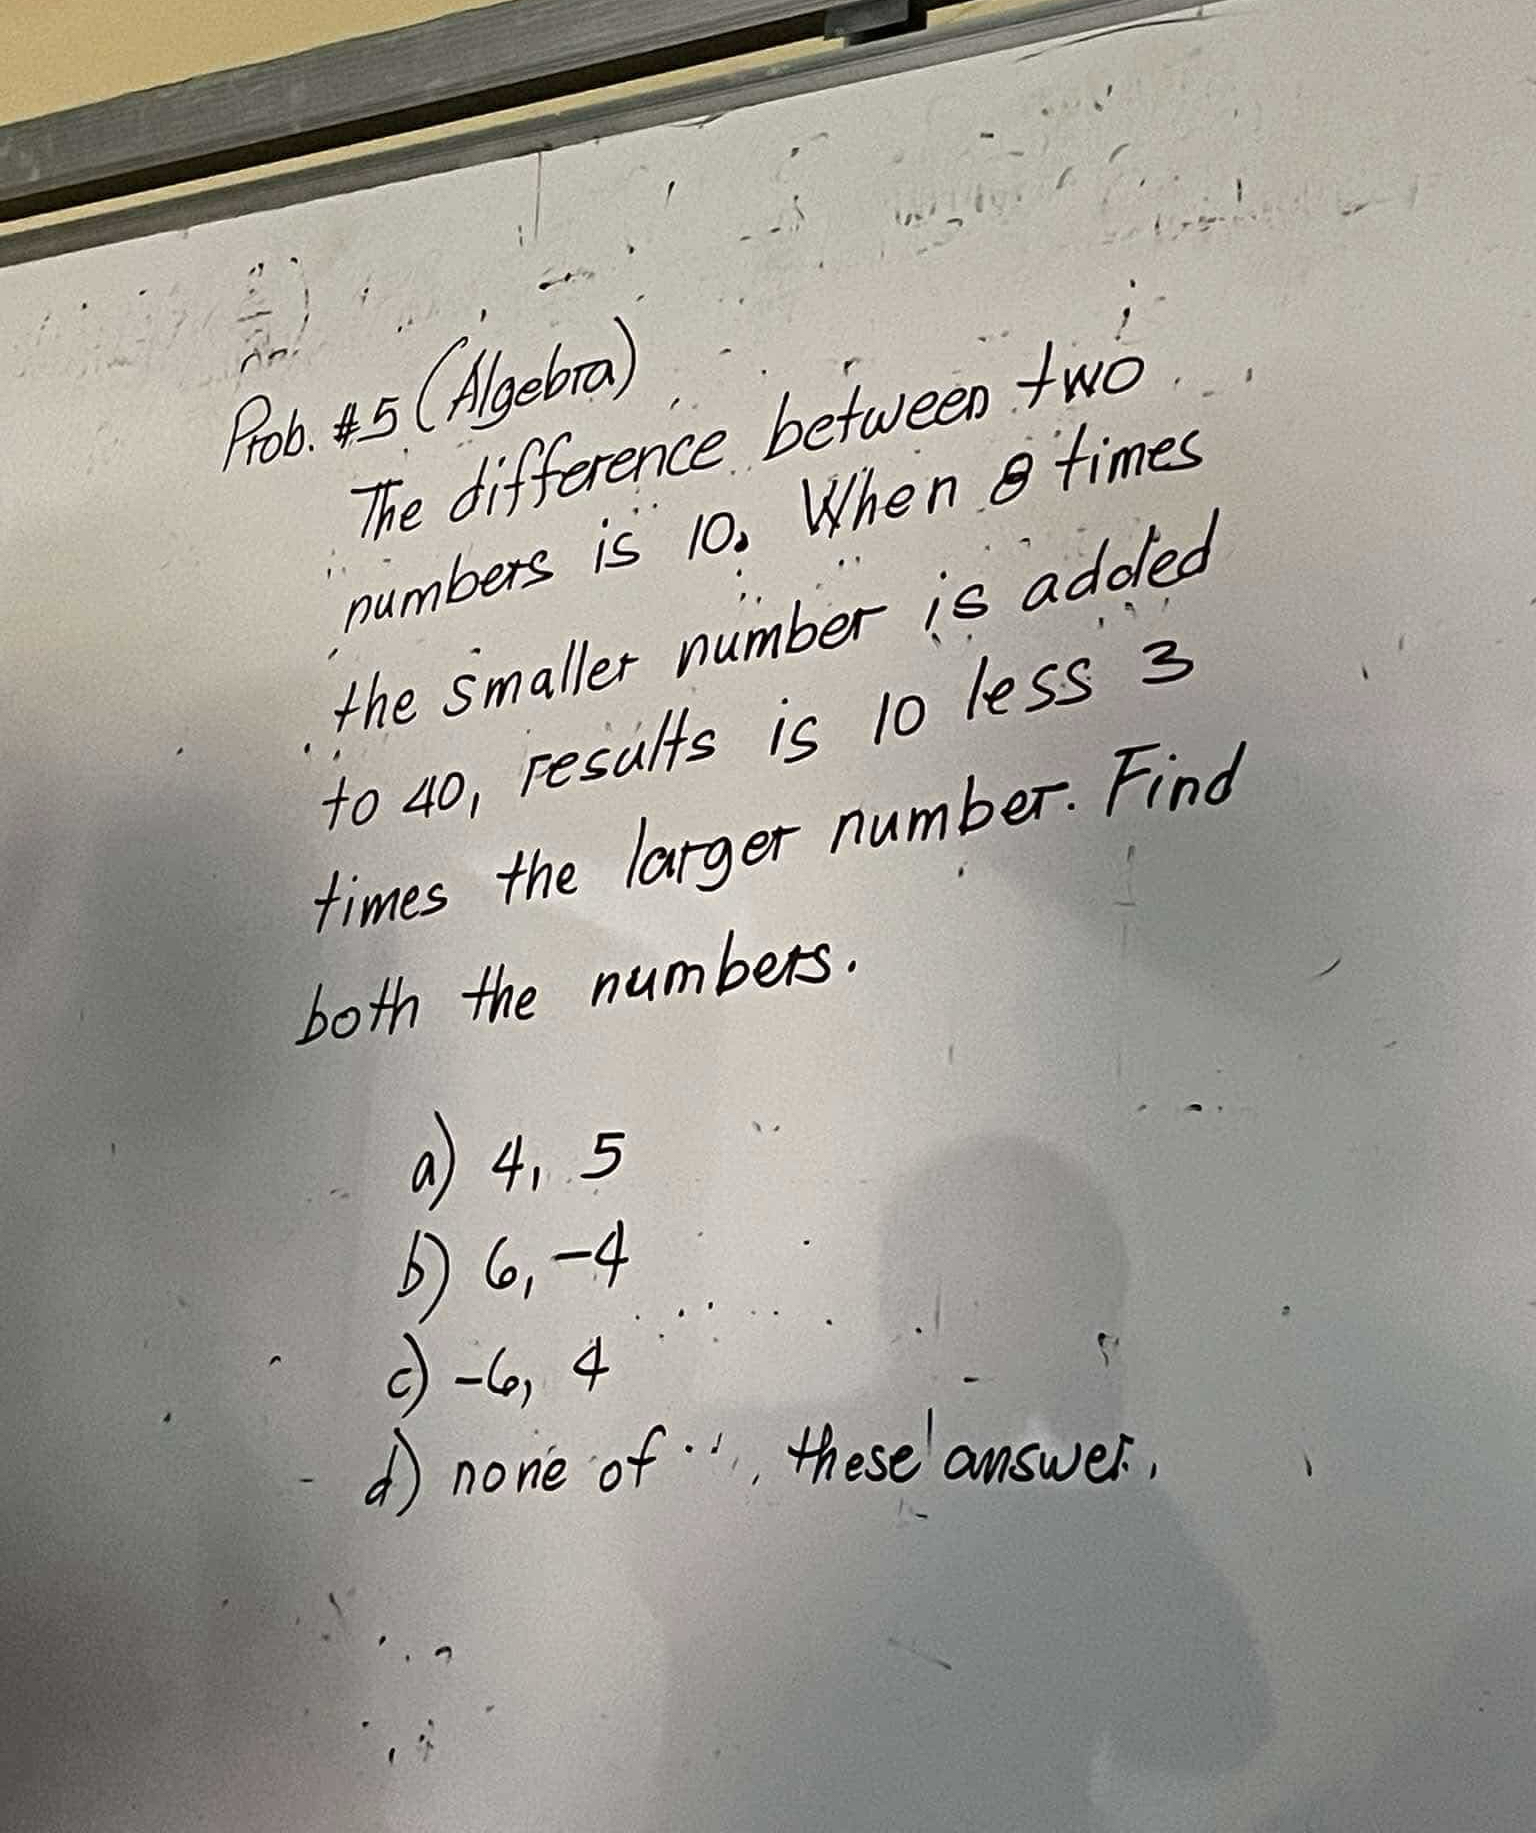 Prob. #5 (Algebra)
The difference between two
numbers is 10. When 8 times
the smaller number is added
to 40, results is 10 less 3
times the larger number. Find
both the numbers.
a) 4, 5
b) 6, -4
c) -6, 4
d) none of these answer.